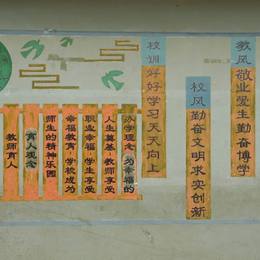 教风敬业爱生勤奋博学
校风勤奋文明求实创新
校训好好学习天天向上
办学理念:为幸福的
人生奠基·教师享受
职业幸福·学生享受
幸福教育·学校成为
师生的精神乐园
育人观念
教师育人